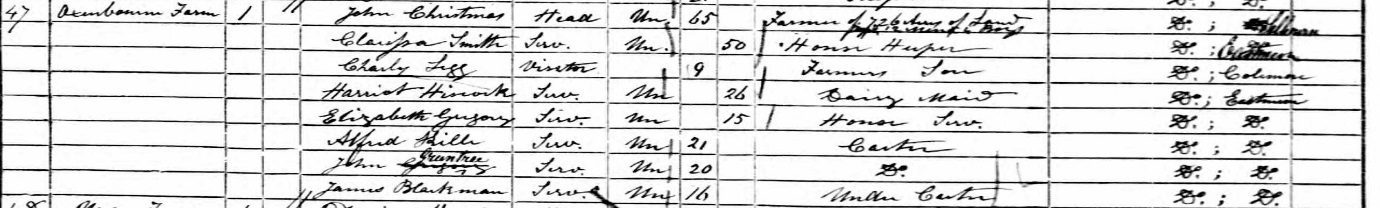 47 Oxenbourn Farm 1 John Christmas Head Un 65 Farmer of 726 Acres of Land D.;
Clarissa Smith Serv. Un. 50 House Keeper D.; Eastmeon
Charly Legg Visitor 9 Farmers Son D.; Colemore
Harriot Hiscock Serv. Un 26 Dairy Maid D.; Eastmeon
Elizabeth Gregory Serv. Un 15 House Serv. D.; D.
Alfred Serv. Un 21 Carter D.; D.
John Gregory Gruntree Serv. Un 20 D. D.; D.
James Blackman Serv. Un 16 Under Carter D.; D.